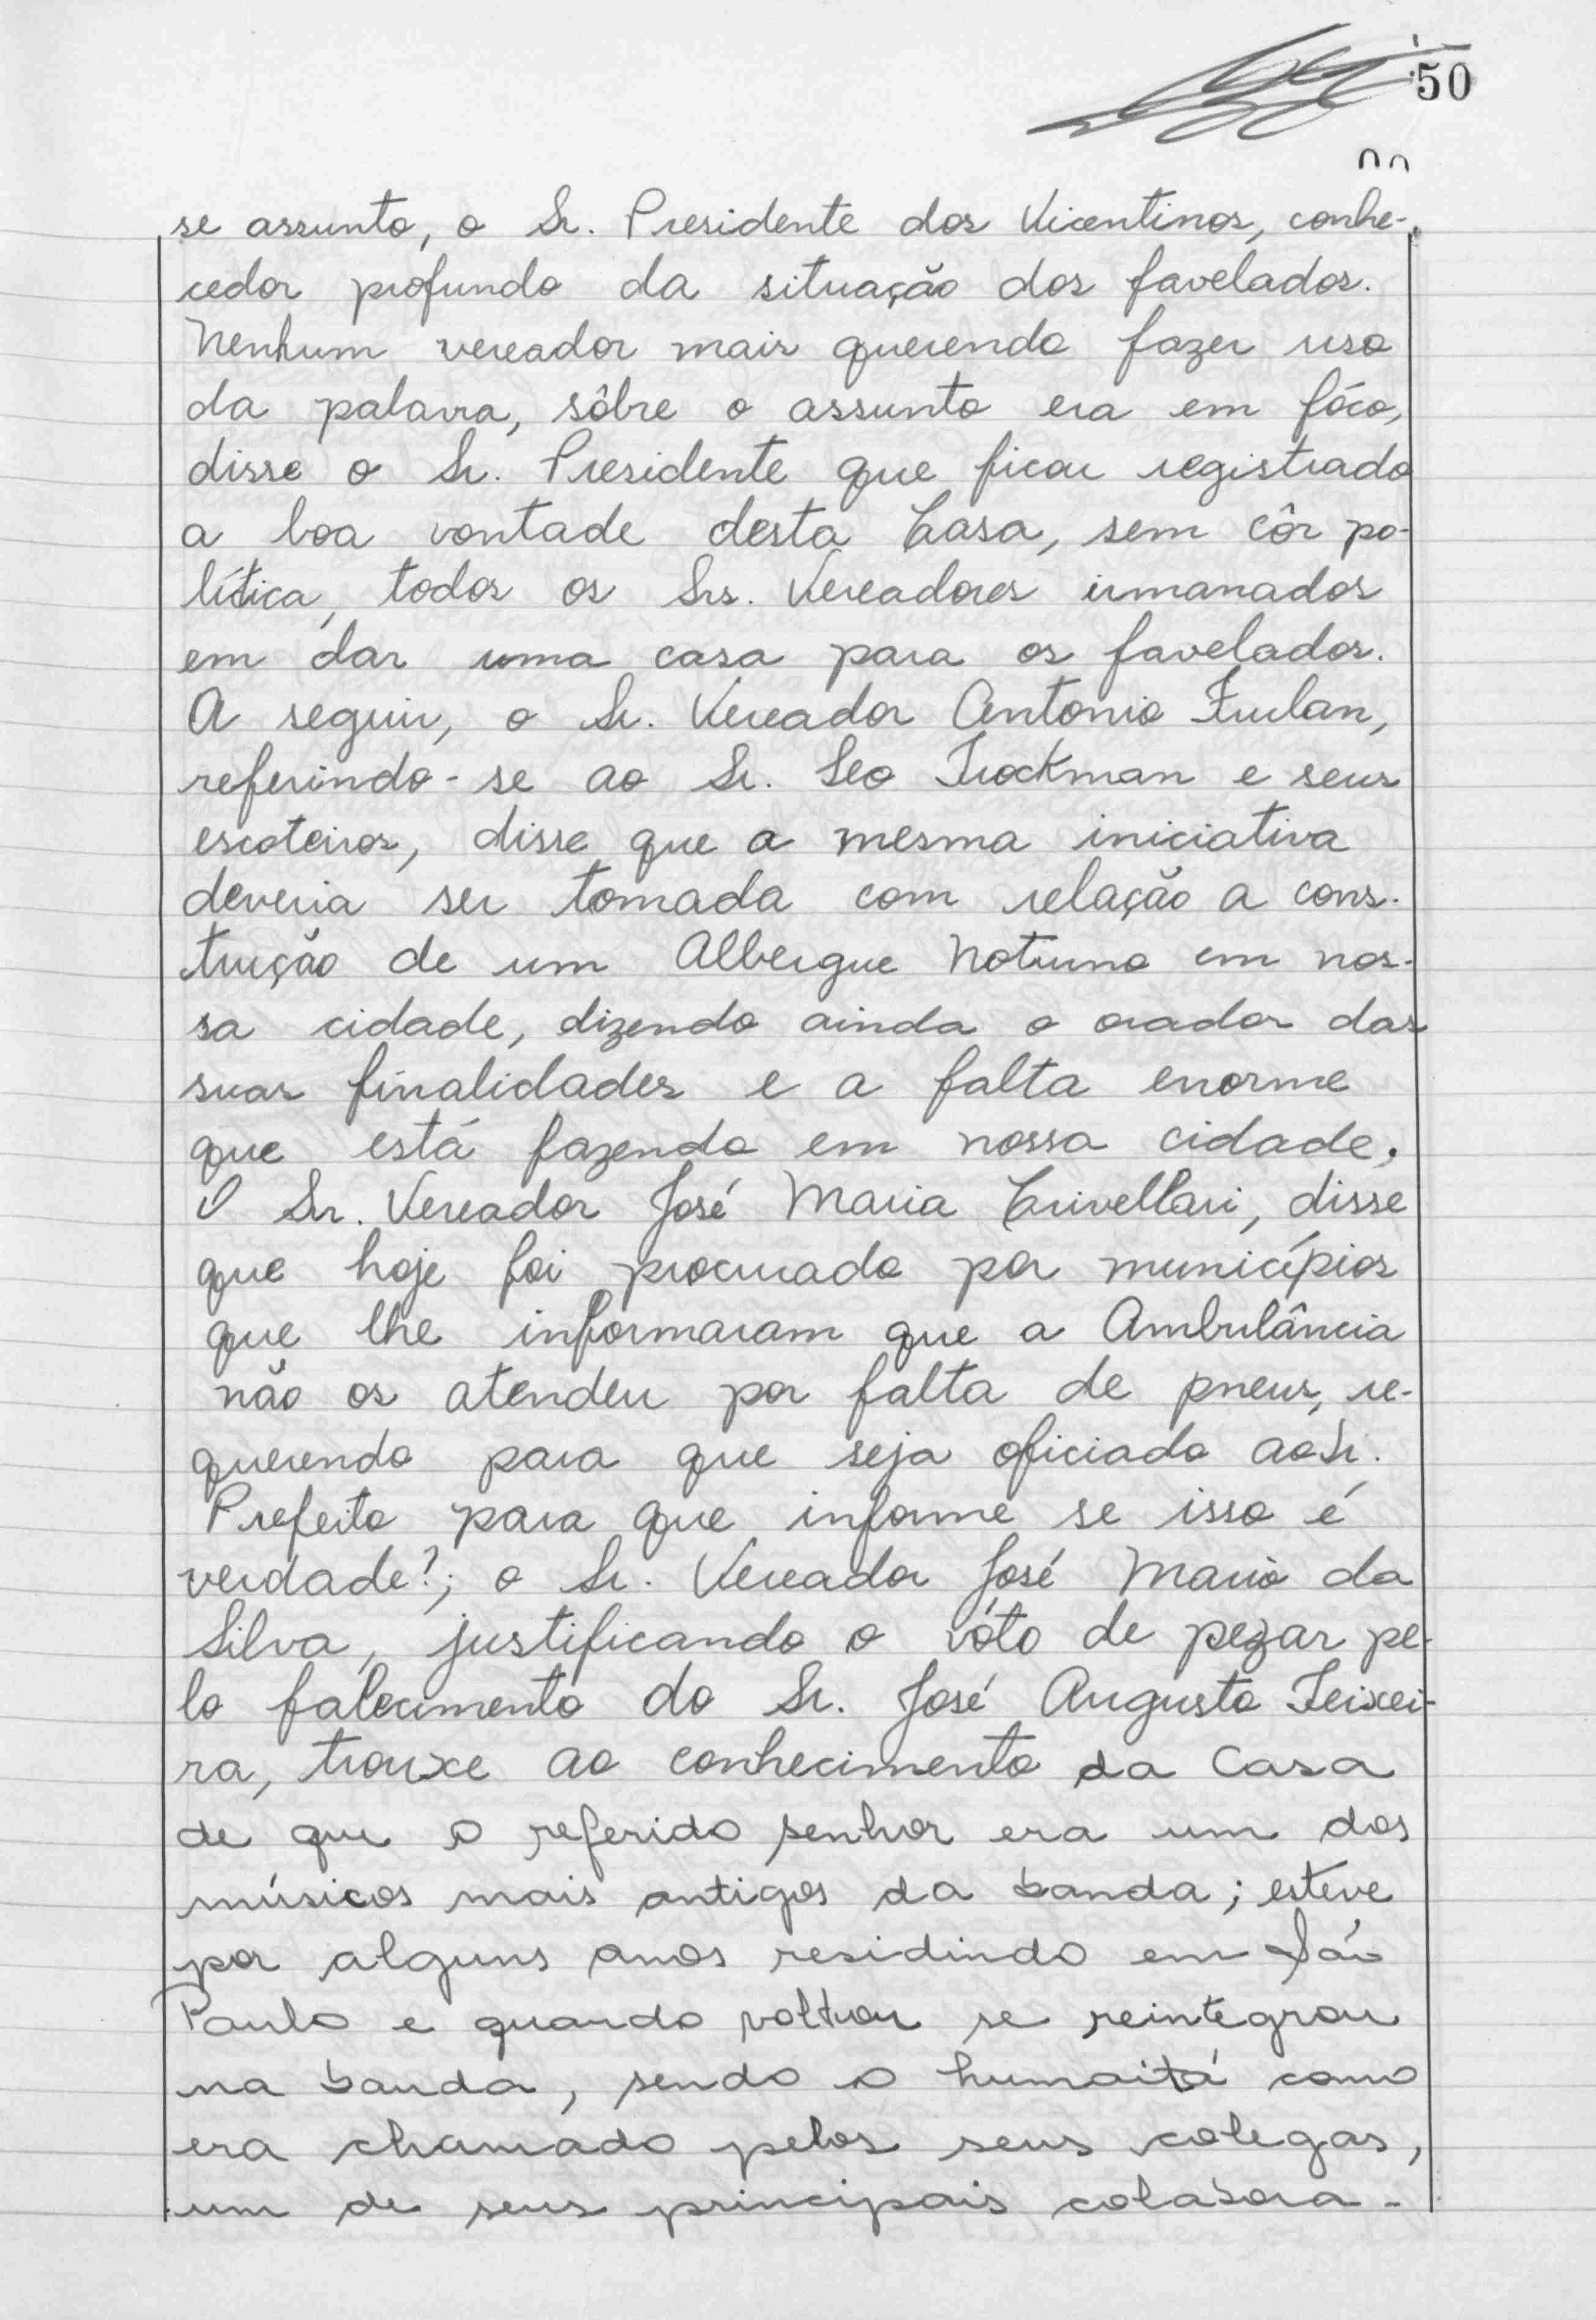 50
se assunto, o Sr. Presidente dos Vicentinos, conhe-
cedor profundo da situação dos favelados.
Nenhum vereador mais querendo fazer uso
da palavra, sôbre o assunto era em fóco,
disse o Sr. Presidente que ficou registrado
a boa vontade desta Casa, sem côr po-
lítica, todos os Srs. Vereadores irmanados
em dar uma casa para os favelados.
A seguir, o Sr. Vereador Antonio Furlan,
referindo-se ao Sr. Leo Trockman e seus
escoteiros, disse que a mesma iniciativa
deveria ser tomada com relação a cons-
trução de um Albergue Noturno em nos-
sa cidade, dizendo ainda o orador das
suas finalidades e a falta enorme
que está fazendo em nossa cidade.
O Sr. Vereador José Maria Crivellari, disse
que hoje foi procurado por municípios
que lhe informaram que a Ambulância
não os atendeu por falta de pneus, re-
querendo para que seja oficiado ao Sr.
Prefeito para que informe se isso é
verdade?; o Sr. Vereador José Mario da
Silva, justificando o vóto de pezar pe-
lo falecimento do Sr. José Augusto Teixei-
ra, trouxe ao conhecimento da Casa
de que o referido senhor era um dos
músicos mais antigos da banda; esteve
por alguns anos residindo em São
Paulo e quando voltou se reintegrou
na banda, sendo o humaitá como
era chamado pelos seus colegas,
um de seus principais colabora-